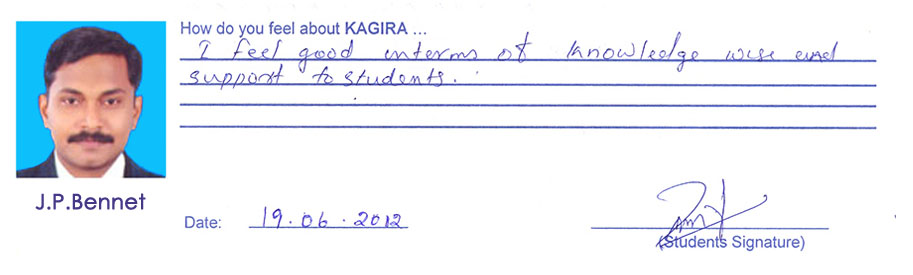 How do you feel about KAGIRA ...
I feel good interms of knowledge wise and
support to students.
J.P.Bennet
Date: 19.06.2012
(Students Signature)